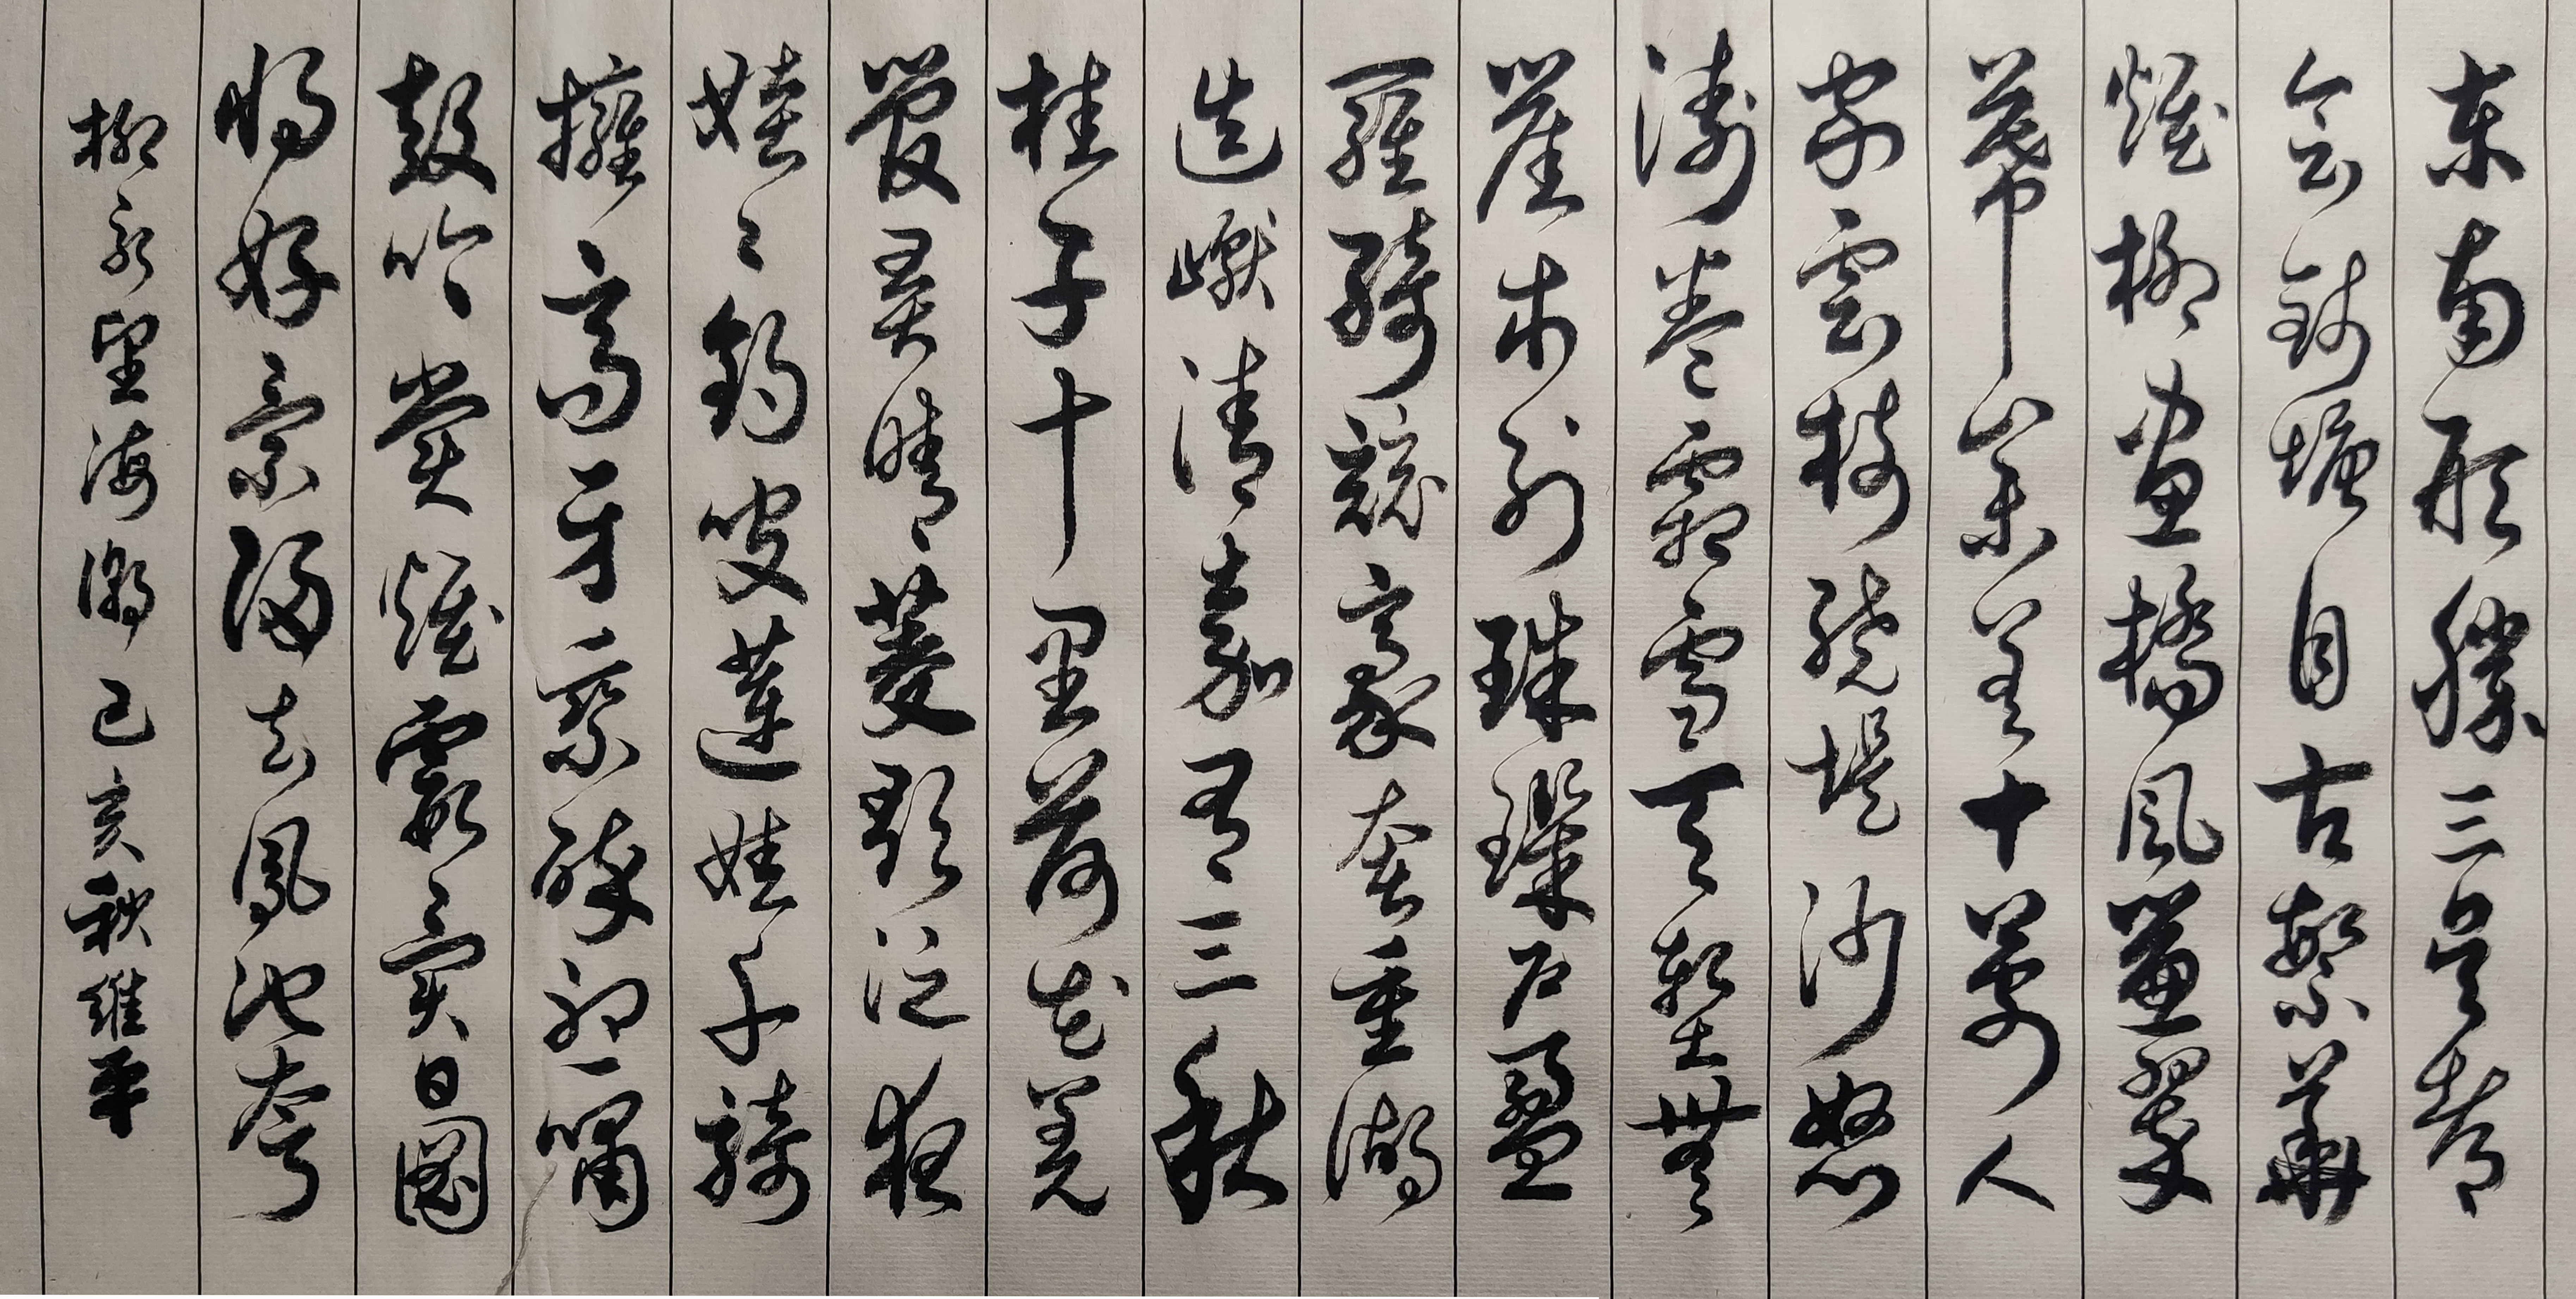 東南形勝三吳都
會錢塘自古繁華
煙柳畫橋風簾翠
幕參差十萬人
家雲樹繞堤沙怒
濤卷霜雪天塹無
崖市列珠璣戶盈
羅綺競豪奢重湖
疊巘清嘉有三秋
桂子十里荷花羌
管弄晴菱歌泛夜
嬉嬉釣叟蓮娃千騎
擁高牙乘醉聽簫
鼓吟賞煙霞異日圖
將好景歸去鳳池誇
柳永望海潮 己亥秋維平